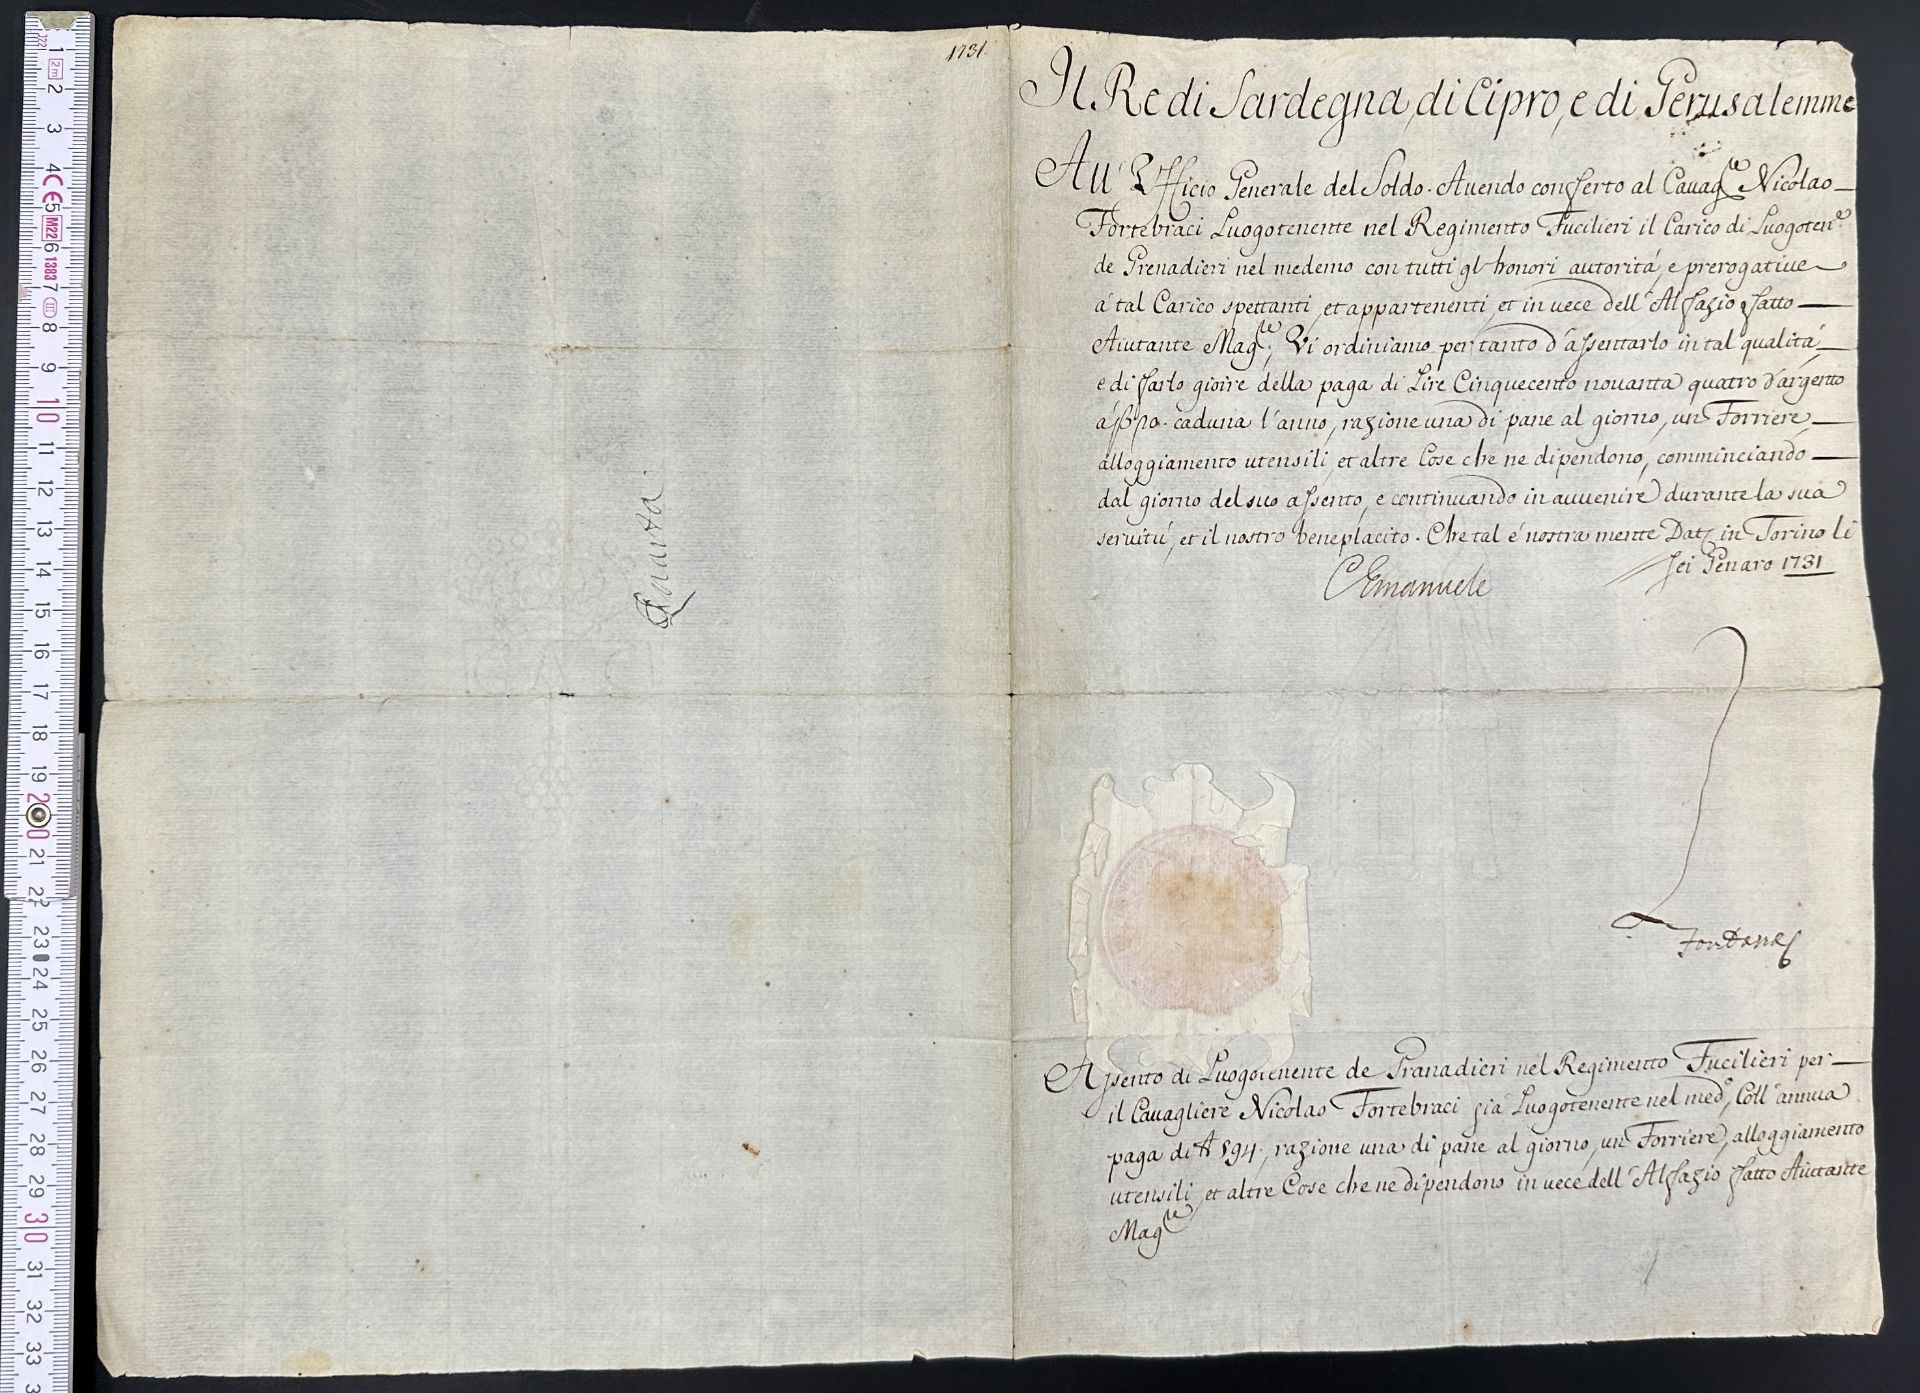 1731.
Il Re di Sardegna, di Cipro, e di Gerusalemme
All' Ufficio Generale del Soldo. Avendo conferto al Cavag.re Nicolao
Fortebraci Luogotenente nel Regimento Fucilieri il Carico di Luogoten.e
de Grenadieri nel medemo con tutti gl' honori autorità, e prerogative
à tal Carico spettanti, et appartenenti, et in vece dell' Alfazio fatto
Aiutante Mag.re, Vi ordiniamo per tanto d' assentarlo in tal qualità,
e di farlo gioire della paga di Lire Cinquecento novanta quatro d'argento
caduna l' anno, razione una di pane al giorno, un Forriere,
alloggiamento utensili, et altre Cose che ne dipendono, comminciando
dal giorno del suo assento, e continuando in avvenire durante la sua
servitù, et il nostro beneplacito. Che tal è nostra mente Dat. in Torino li
sei Genaro 1731
CEmanuele
Quarta
Fontana
Assento di Luogotenente de Granadieri nel Regimento Fucilieri per
il Cavagliere Nicolao Fortebraci già Luogotenente nel med.o, Coll' annua
paga di 594., razione una di pane al giorno, un Forriere, alloggiamento
utensili, et altre Cose che ne dipendono in vece dell' Alfazio fatto Aiutante
Mag.re
1
2
3
4
5
6
7
8
9
10
11
12
13
14
15
16
17
18
19
20
21
22
23
24
25
26
27
28
29
30
31
32
33
2m
CE M22 1383
III